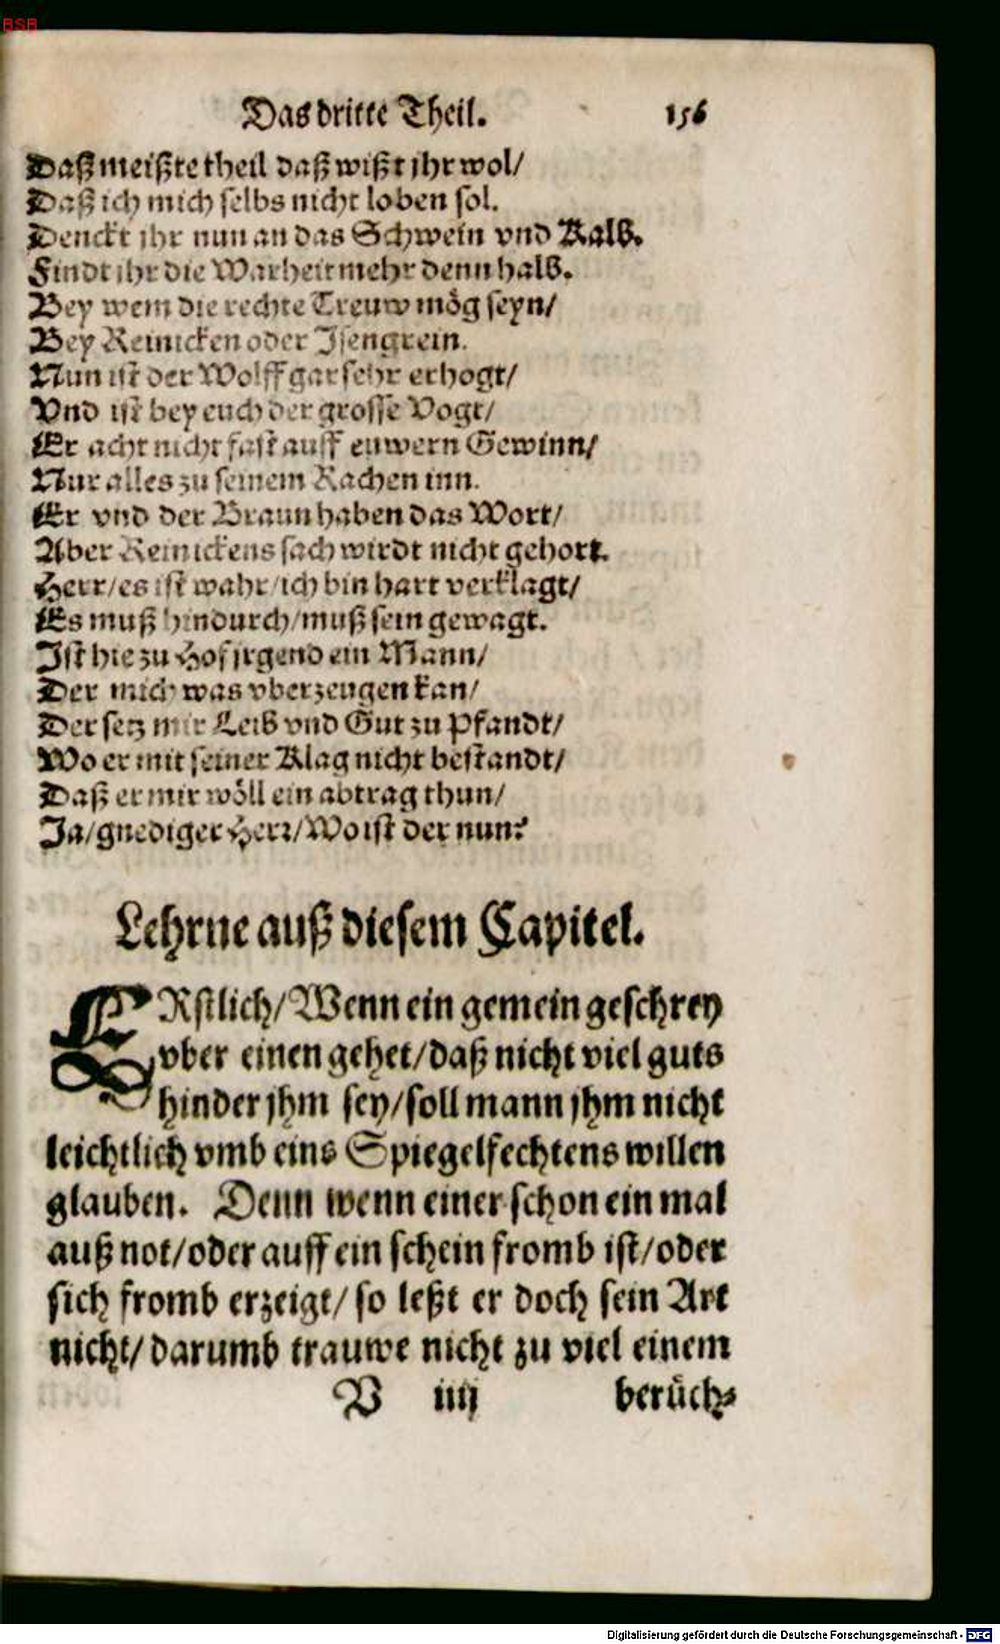 BSB
Das dritte Theil. 156
Daß meißte theil daß wißt jhr wol/
Daß ich mich selbs nicht loben sol.
Denckt jhr nun an das Schwein vnd Kalb.
Findt jhr die Warheit mehr denn halb.
Bey wem die rechte Treuw mög seyn/
Bey Reinicken oder Isengrein.
Nun ist der Wolff gar sehr erhogt/
Vnd ist bey euch der grosse Vogt/
Er acht nicht fast auff euwern Gewinn/
Nur alles zu seinem Rachen inn.
Er vnd der Braun haben das Wort/
Aber Reinickens sach wirdt nicht gehort.
Herr/es ist wahr/ich bin hart verklagt/
Es muß hindurch/muß sein gewagt.
Ist hie zu Hof jrgend ein Mann/
Der mich was vberzeugen kan/
Der setz mir Leib vnd Gut zu Pfandt/
Wo er mit seiner Klag nicht bestandt/
Daß er mir wöll ein abtrag thun/
Ja/gnediger Herr/Wo ist der nun?
Lehrne auß diesem Capitel.
ERstlich/Wenn ein gemein geschrey
vber einen gehet/daß nicht viel guts
hinder jhm sey/soll mann jhm nicht
leichtlich vmb eins Spiegelfechtens willen
glauben. Denn wenn einer schon ein mal
auß not/oder auff ein schein fromb ist/oder
sich fromb erzeigt/so leßt er doch sein Art
nicht/darumb trauwe nicht zu viel einem
V iiij berüch-
Digitalisierung gefördert durch die Deutsche Forschungsgemeinschaft - DFG